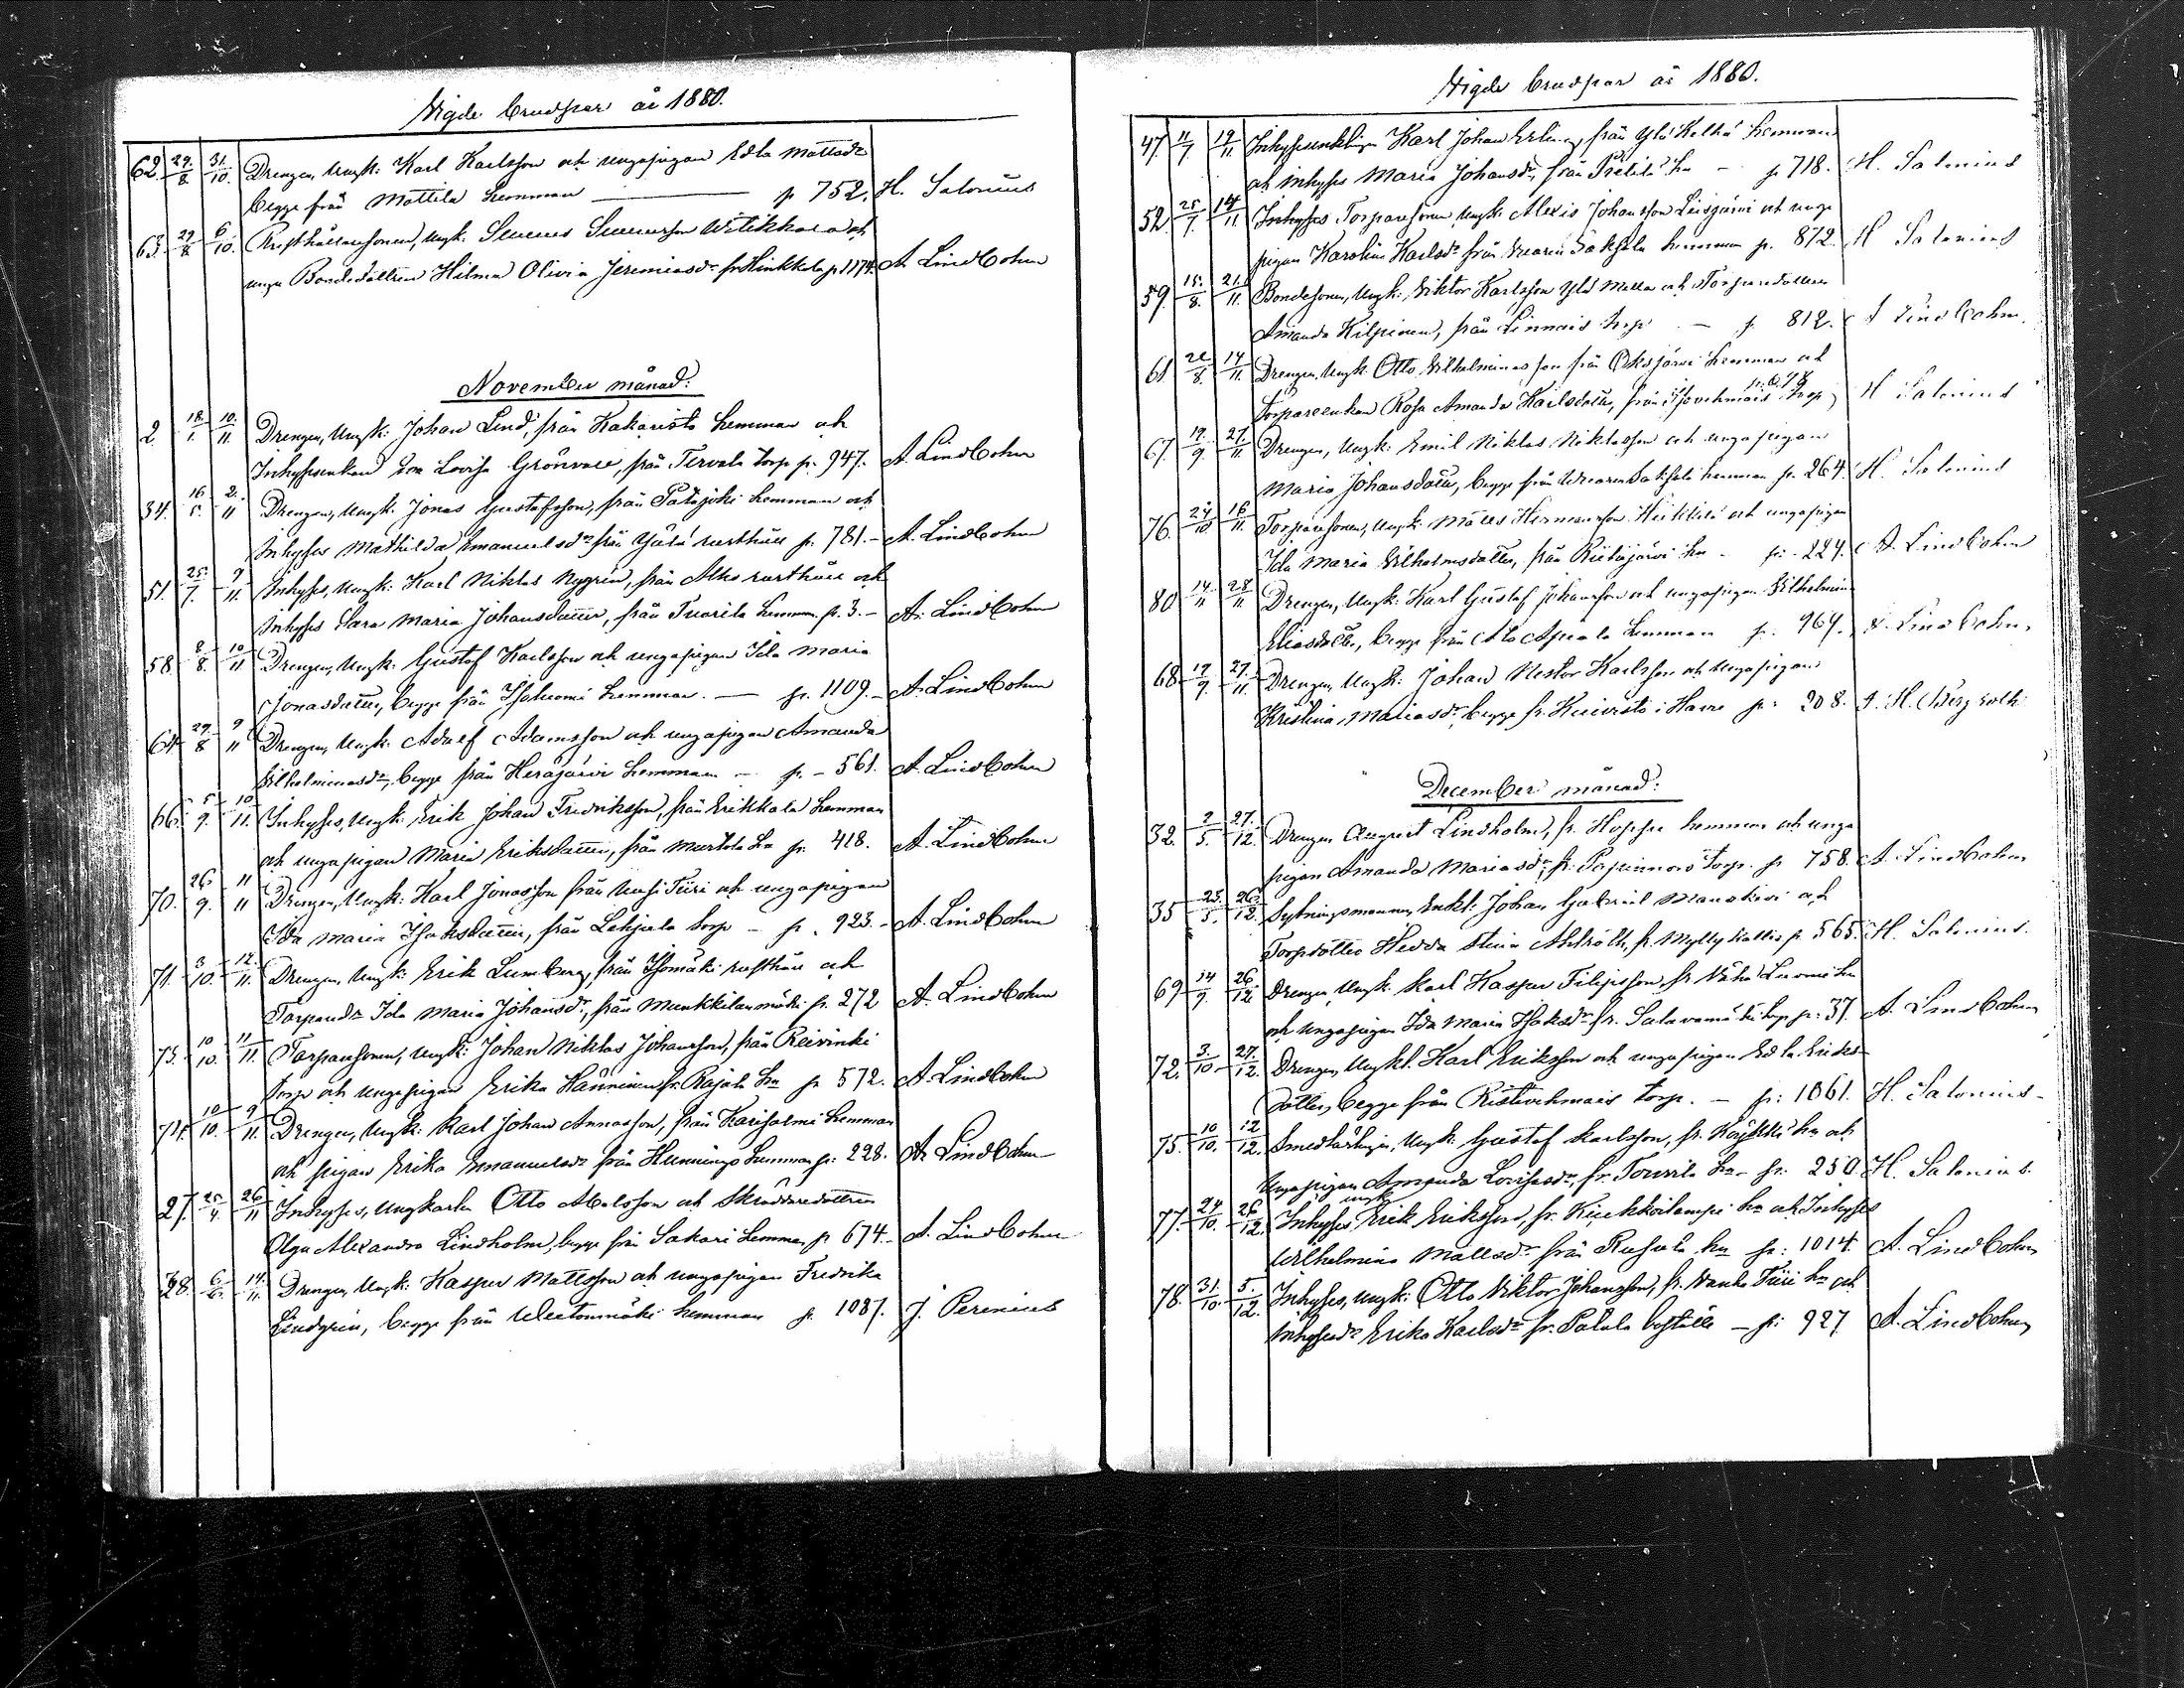 Vigde brudpar år 1880.
62. 29/8. 31/10. Drengen, Ungk: Karl Karlsson och ungapigan Edla Mattsdr
begge från Mattila hemman — p 752. H. Salonius
63. 29/8 6/10. Rusthållaresonen, Ungk. Witikkala och
unga Bondedottren Hilma Olivia Jeremiasdr fr. Hinkkala p 1174. A. Lindbohm
November månad:
2 18/1. 10./11 Drengen, Ungk: Johan Lind, från Kakaristo hemman och
Inhyses enkan Eva Lovisa Grönvall, från Tervala torp p. 947. A. Lindbohm
34. 16/5. 2./11 Drengen, Ungk. Jonas Gustafsson, från hemman och
Inhyses Mathilda Emanuelsdr från rusthåll p. 781. – A. Lindbohm
51. 25./7. 9/11. Inhyses, Ungk: Karl Niklas Nygrén, från Alho rusthåll och
Inhyses Sara Maria Johansdotter, från Tuorila hemman p. 3. – A. Lindbohm
58 8/8. 10/11 Drengen, Ungk: Gustaf Karlsson och ungapigan Ida Maria
Jonasdotter, begge från hemman. — p. 1109. – A. Lindbohm
64. 29./8 9/11 Drengen, Ungk: Adolf Adamsson och ungapigan Amanda
Vilhelminasdr, begge från Heräjärvi hemman – p. – 561. A. Lindbohm
66. 5/9. 10/11. Inhyses, Ungk: Erik Johan Fredriksson, från Erikkala hemman
och ungapigan Maria Eriksdotter, från Murtola hn p. 418. A. Lindbohm
70. 26/9. 11/11 Drengen, Ungk: Karl Jonasson från Uusi Tiiri och ungapigan
Ida Maria Isaksdotter, från Lehjala torp – p. 923. – A. Lindbohm
71. 3/10. 12./11. Drengen, Ungk: Erik Lumberg, från Isomäki rusthåll och
Torparedr Ida Maria Johansdr, från Munkkilanmäki p. 272 A. Lindbohm
73. 10/10. 11/11. Torparesonen, Ungk: Johan Niklas Johansson, från Reivinki
torp och ungapigan Erika Hänninen fr. Rajala hn p 572. A. Lindbohm
74. 10/10. 9/11. Drengen, Ungk: Karl Johan Annasson, från Karisalmi hemman
och pigan Erika Emanuelsdr från Hennings hemman p: 228. A. Lindbohm
27. 25/4. 26/11 Inhyses, Ungkarlen Otto Abelsson och Skräddaredottren
Olga Alexandra Lindholm, begge från Sakari hemman p 674. – A. Lindbohm
38. 6/6. 14./11. Drengen, Ungk: Kasper Mattsson och ungapigan Fredrika
Lindgrén, begge från hemman p. 1087. J. Perenius
Vigde brudpar år 1880.
47. 11/7 19/11. Inhysesenklingen Karl Johan Erling, från Ylä Kelhä hemman
och inhyses Maria Johansdr, från Prétilä hn – p 718. H. Salonius
52. 25/7. 14/11. Inhyses Torparesonen, Ungk. Alexis Johansson och unga
pigan Karolina Karlsdr från Saksala hemman p. 872. H Salonius
59. 15./8. 21./11. Bondesonen, Ungk: Viktor Karlsson Ylö Mella och Torparedottren
Amanda Kilpinen, från Linnais torp – p. 812. A Lindbohm.
61. 22/8. 14/11. Drengen, Ungk. Otto Vilhelminasson från Oksjärvi hemman och
Torpareenkan Rosa Amanda Karlsdotter, från torp, H Salonius
67. 19/9. 27./11 Drengen, Ungk: Emil Niklas Niklasson och ungapigan
Maria Johansdotter, begge från Saksala hemman p. 264. H. Salonius
76. 24/10. 16/11. Torparesonen, Ungk: Hermansson Heikkilä och ungapigan
Ida Maria Vilhelmsdotter, från hn – p: 224. A. Lindbohm
80 14/11 28/11 Drengen, Ungk: Karl Gustaf Johansson och ungapigan Vilhelmina
Eliasdotter, begge från hemman p. 964. A. Lindbohm
68. 19/9. 27./11. Drengen, Ungk: Johan Nestor Karlsson och Ungapigan
Kristina Mariasdr, begge fr. Kuivisto i Harre p: 208. A. H. Bergroth
December månad:
32. 2/5. 27./12. Drengen August Lindholm, fr. Hoppu hemman och unga
pigan Amanda Mariasdr, fr. torp. p 758. A. Lindbohm
35 23./5. 26./12. Sytningsmannen, Enkl: Johan Gabriel Manskivi och
Torpdotter Hedda Stina Ahlroth, fr. Myllykallio p. 565. H. Salonius.
69 14/9. 26./12. Drengen Ungk. Karl Kasper Filipsson, fr Vähä Luomi hn
och ungapigan Ida Maria Isaksdr fr. Salavamäki torp p: 37. A. Lindbohm
72. 3./10. 27./12. Drengen, Ungkl. Karl Eriksson och ungapigan Edla Eriks-
dotter, begge från Ristivehmais torp. – p: 1061. H. Salonius –
75. 10/10. 12/12. Ungk. Gustaf Karlsson, fr. Köykkä hn och
Ungapigan Amanda Lovisasdr, fr. Tourila hn – p: 250. H. Salonius.
ungk
77. 24/10. 26/12. Inhyses Erik Eriksson, fr. hn och Inhyses
Wilhelmina Mattsdr från Rusala hn p: 1014. A. Lindbohm
78. 31./10. 5./12. Inhyses, Ungk: Otto Viktor Johansson, fr. Vanha Tiiri hn och
Inhysesdr Erika Karlsdr fr. Palula boställe – p: 927 A. Lindbohm